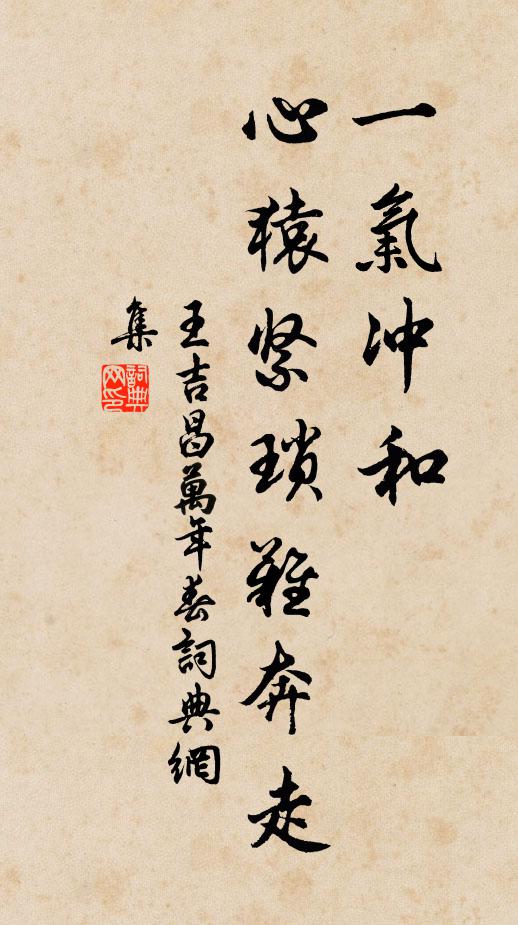 一氣沖和
心猿紧瑣難奔走
王吉昌萬年春詞典網
集
詞典
网印